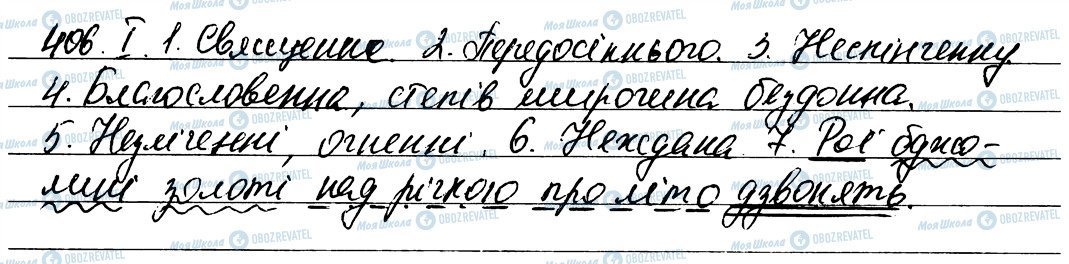 406. I. 1. Священне. 2. Передосіннього. 3. Нескінченну
4. Благословенна, степів широчина бездонна.
5. Незліченні, огненні. 6. Неждана 7. Рої бджо-
лині золоті над річкою про літо дзвонять.